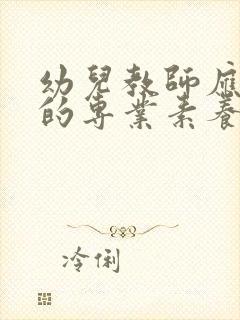 幼兒教師應
的專業素養
冷俐